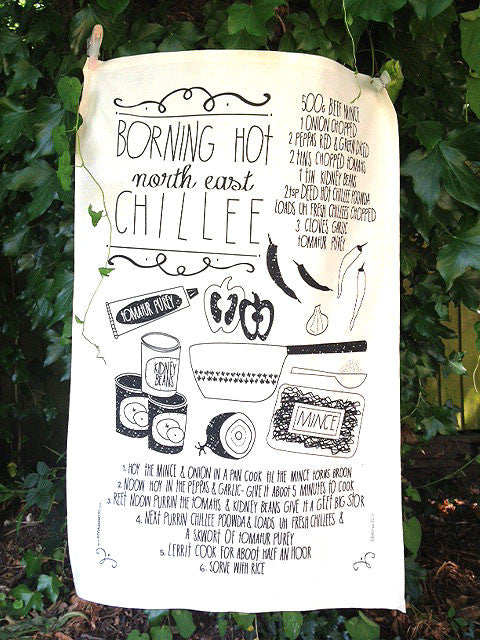 BORNING HOT
north east
CHILLEE
500g BEEF MINCE
1 ONION CHOPPED
2 PEPPAS RED & GREEN DICED
2 TINS CHOPPED TOMATIS
1 TIN KIDNEY BEANS
2tsp DEED HOT CHILLEE POOWDA
LOADS UH FRESH CHILLEES CHOPPED
3 CLOVES GARLIC
TOMATUR PUREY
TOMATUR PUREY
KIDNEY
BEANS
MINCE
1. HOY THE MINCE & ONION IN A PAN COOK TIL THE MINCE TORNS BROON
2. NOOW HOY IN THE PEPPAS & GARLIC - GIVE IT ABOOT 5 MINUITS TO COOK
3. REET NOOW PURRIN THE TOMATIS & KIDNEY BEANS GIVE IT A GEET BIG STOR
4. NEXT PURRIN CHILLEE POOWDA & LOADS UH FRESH CHILLEES &
A SKWORT OF TOMATUR PUREY
5. LERRIT COOK FOR ABOOT HALF AN HOOR
6. SORVE WITH RICE